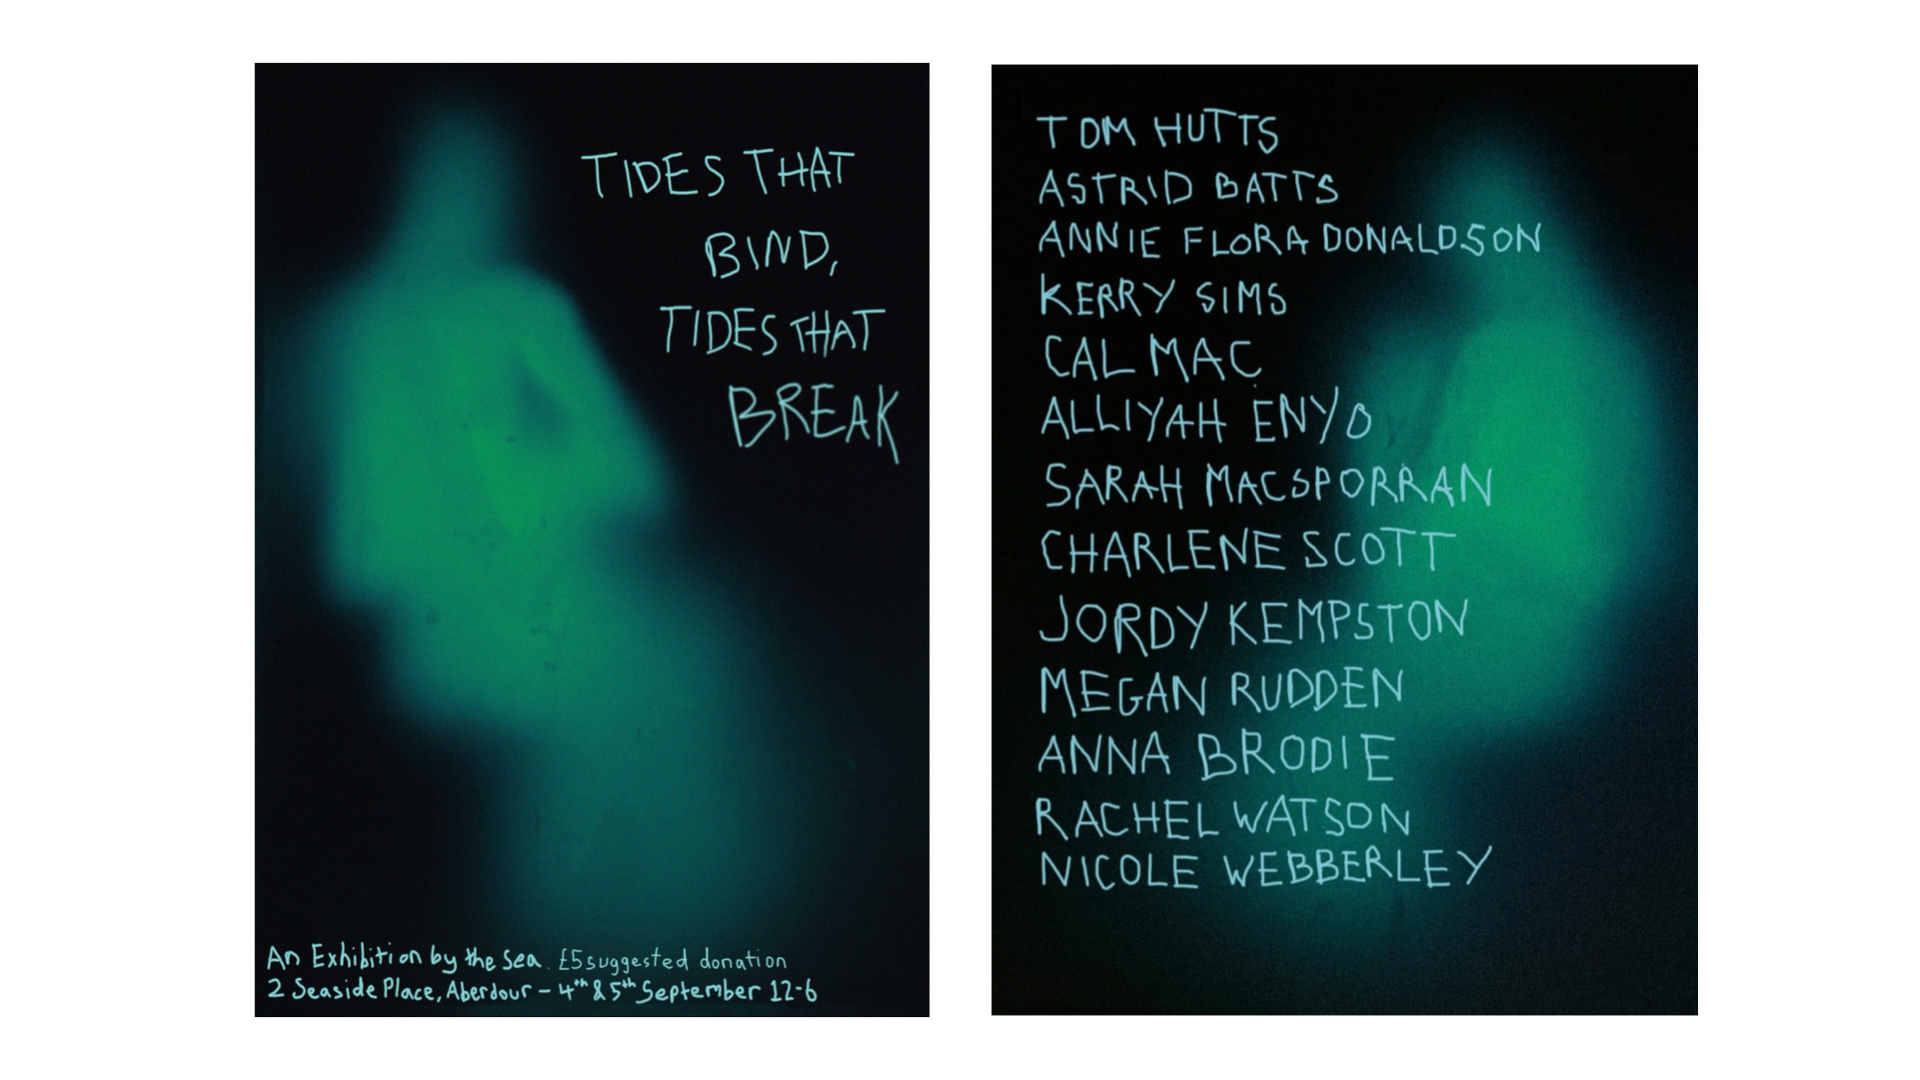 TIDES THAT
BIND,
TIDES THAT
BREAK
An Exhibition by the Sea. £5 suggested donation
2 Seaside Place, Aberdour - 4th & 5th September 12-6
TOM HUTTS
ASTRID BATTS
ANNIE FLORA DONALDSON
KERRY SIMS
CAL MAC
ALLIYAH ENYO
SARAH MACSPORRAN
CHARLENE SCOTT
JORDY KEMPSTON
MEGAN RUDDEN
ANNA BRODIE
RACHEL WATSON
NICOLE WEBBERLEY